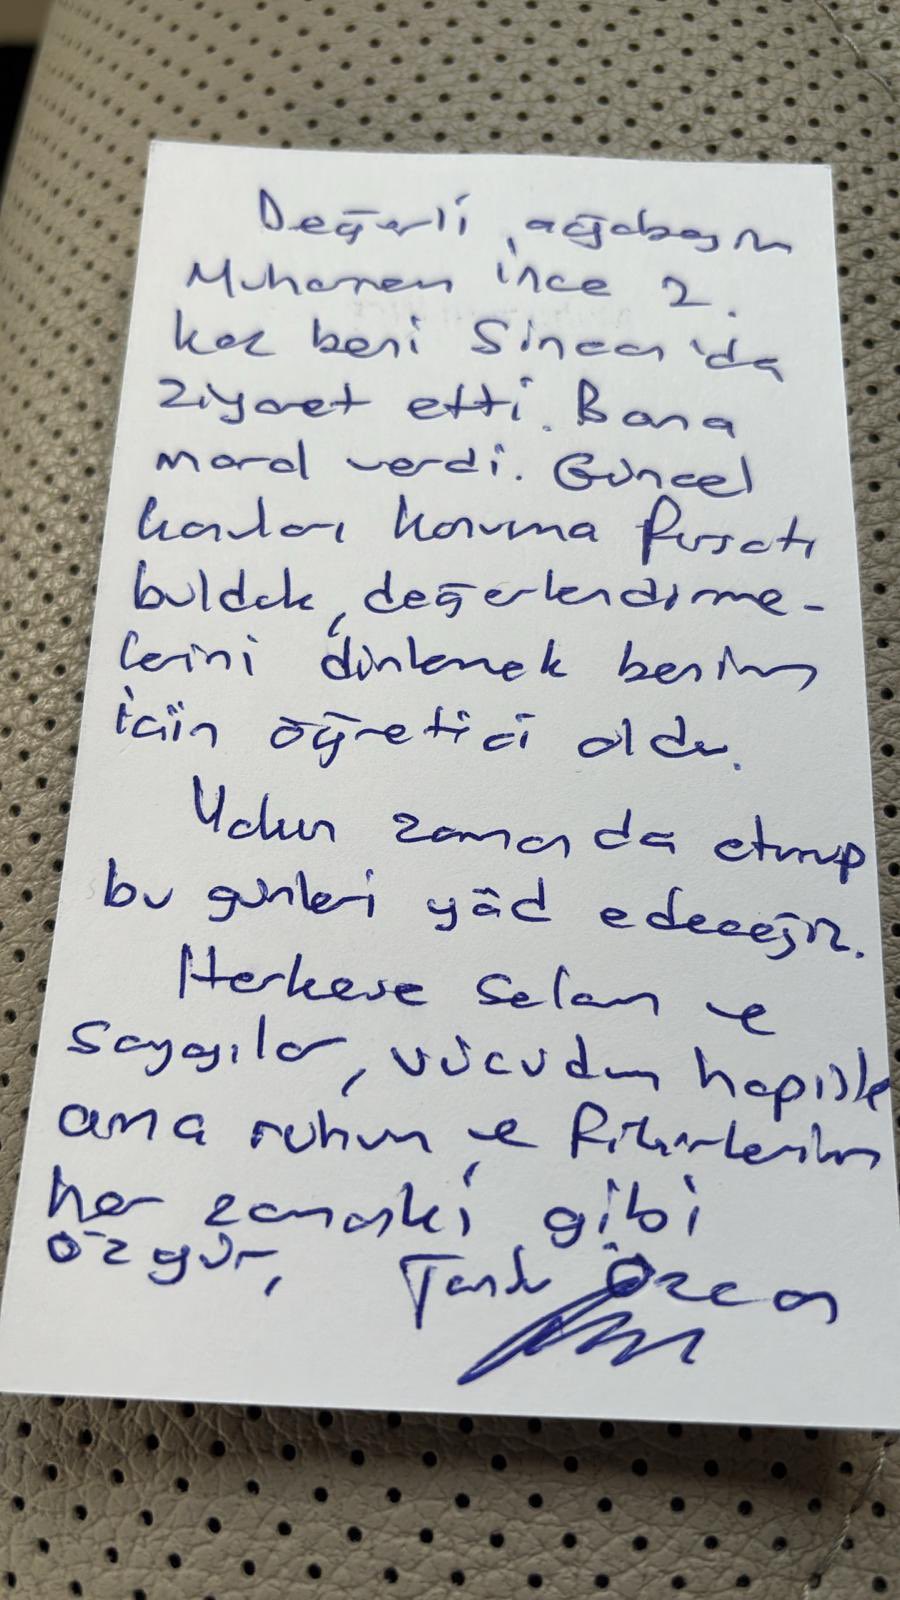 Değerli ağabeyim
Muharrem İnce 2.
kez beni Sincan'da
ziyaret etti. Bana
moral verdi. Güncel
konuları konuşma fırsatı
bulduk, değerlendirme-
lerini dinlemek benim
için öğretici oldu.
Yakın zamanda oturup
bu günleri yâd edeceğiz.
Herkese selam ve
saygılar, vücudum hapiste
ama ruhum ve fikirlerim
her zamanki gibi
özgür, Tanju Özcan